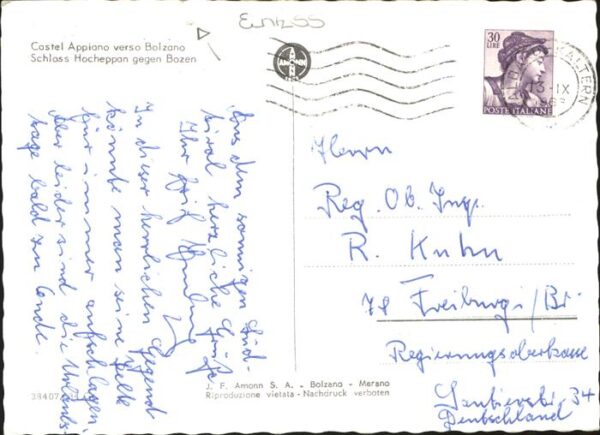 Castel Appiano verso Bolzano
Schloss Hocheppan gegen Bozen
AMONN
30
LIRE
POSTE ITALIANE
KALTERN
13-IX
Aus dem sonnigen Süd-
tirol herzliche Grüße
Ihr
In dieser herrlichen Gegend
könnte man seine Zelte
für immer aufschlagen,
aber leider sind die Urlaubs-
tage bald zu Ende.
Herrn
Reg. Ob. Ing.
R. Kuhn
78 Freiburg i/Br.
Regierungsoberkasse
34
Deutschland
J. F. Amonn S. A. - Bolzano - Merano
Riproduzione vietata - Nachdruck verboten